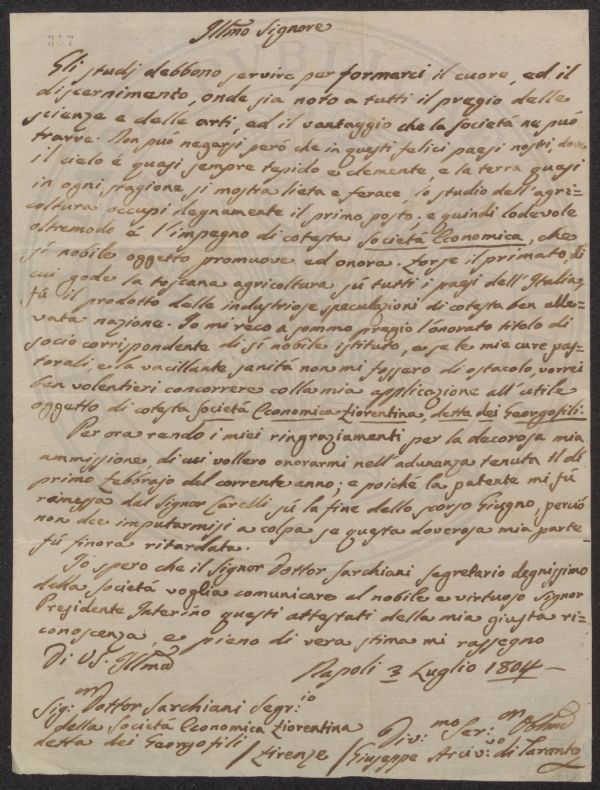 Illmo Signore
Gli studj debbono servire per formarci il cuore, ed il
discernimento, onde sia noto a tutti il pregio delle
scienze e delle arti, ed il vantaggio che la societá ne può
trarre. Non può negarsi peró che in questi felici paesi nostri, dove
il cielo é quasi sempre tepido e clemente, e la terra quasi
in ogni stagione si mostra lieta e ferace, lo studio dell'agri=
coltura occupi degnamente il primo posto, e quindi lodevole
oltremodo é l'impegno di cotesta Societá Economica, che
sí nobile oggetto promuove ed onora. Forse il primato, di
cui gode la toscana agricoltura sú tutti i paesi dell'Italia,
fú il prodotto dalle industriose speculazioni di cotesta ben alle=
vata nazione. Io mi reco a sommo pregio l'onorato titolo di
socio corrispondente di sí nobile istituto, e se le mie cure pas=
torali, e la vacillante sanitá non mi fossero di ostacolo, vorrei
ben volentieri concorrere colla mia applicazione all'utile
oggetto di cotesta Societá Economica Fiorentina, detta dei Georgofili.
Per ora rendo i miei ringraziamenti per la decorosa mia
ammissione di cui vollero onorarmi nell'adunanza tenuta il dí
primo Febbrajo del corrente anno; e poiché la patente mi fú
rimessa dal Signor Carelli sú la fine dello scorso Giugno, perció
non dee imputarmisi a colpa se questa doverosa mia parte
fú finora ritardata.
Io spero che il Signor Dottor Sarchiani Segretario degnissimo
della Societá voglia comunicare al nobile e virtuoso Signor
Presidente Interino questi attestati della mia giusta ri=
conoscenza, e pieno di vera stima mi rassegno
Di VS. Illma
Napoli 3 Luglio 1804
Sig: Dottor Sarchiani Segr:io
della Societá Economica Fiorentina
detta dei Georgofili / Firenze /
Div:mo Ser:vo
Giuseppe Arciv: di Taranto